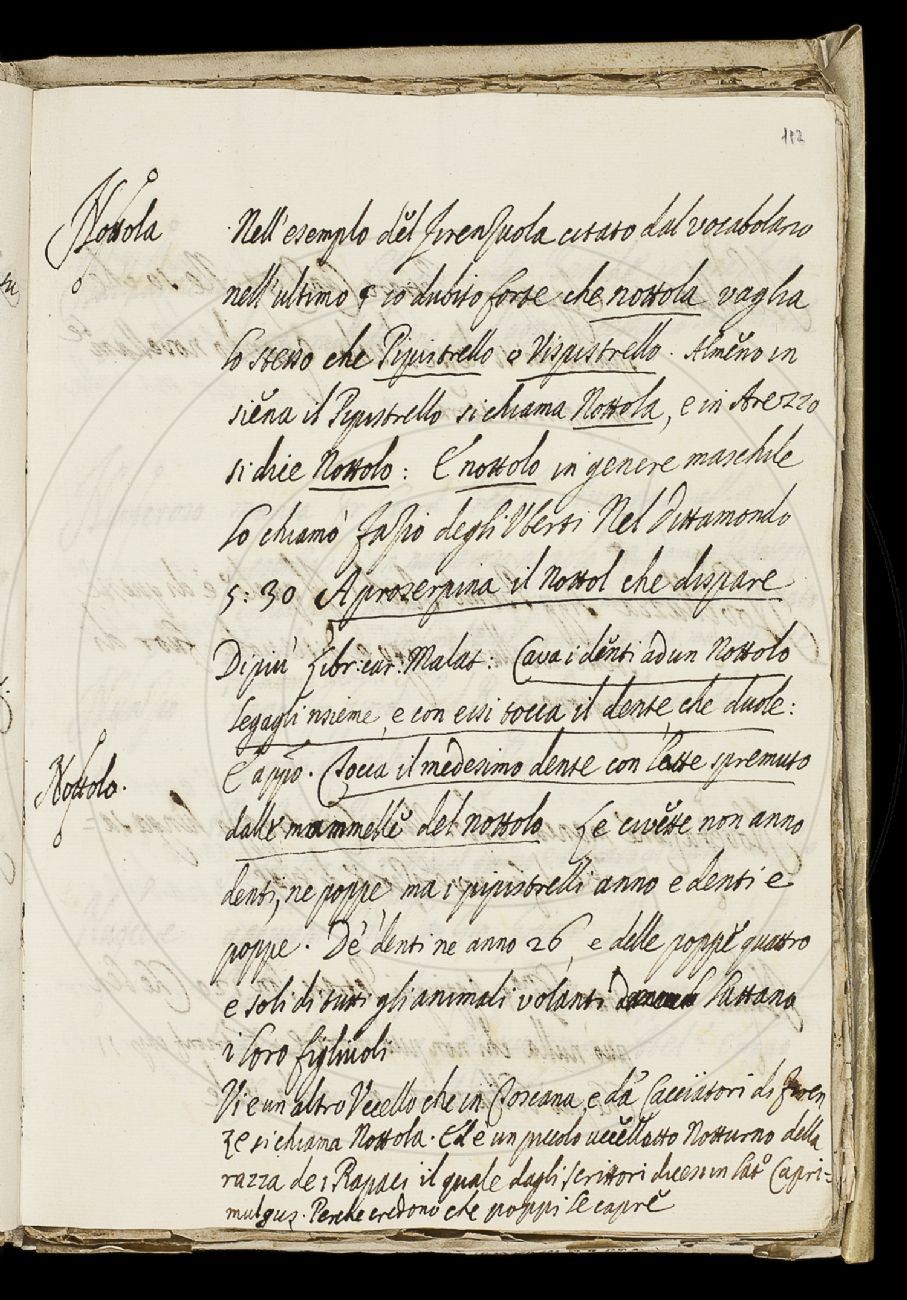 112
Nottola
Nell'esemplo del Firenzuola citato dal vocabolario
nell'ultimo § io dubito forte che nottola vaglia
lo stesso che Pipistrello o Vispistrello. Almeno in
siena il Pipistrello si chiama Nottola, e in Arezzo
si dice Nottolo: E nottolo in genere maschile
lo chiamò Fazio degli Uberti Nel Dittamondo
5:30 A proserpina il nottol che dispare
Di più Libr: cur: Malat: Cava i denti ad un Nottolo
legagli nsieme, e con essi tocca il dente, che duole:
E appo. Tocca il medesimo dente con latte spremuto
Nottolo.
dalle mammelle del nottolo Le civette non anno
denti, ne poppe ma i pipistrelli anno e denti e
poppe. De' denti ne anno 26, e delle poppe quattro
e soli di tutti gli animali volanti lattano
i loro figliuoli
Vi e un altro Uccello che in Toscana e da' Cacciatori di Firen
ze si chiama Nottola. Ed è un piccolo uccelletto Notturno della
razza de i Rapaci il quale dagli scrittori dicesi in lato Capri=
mulgus. Perche credono che poppi le capre